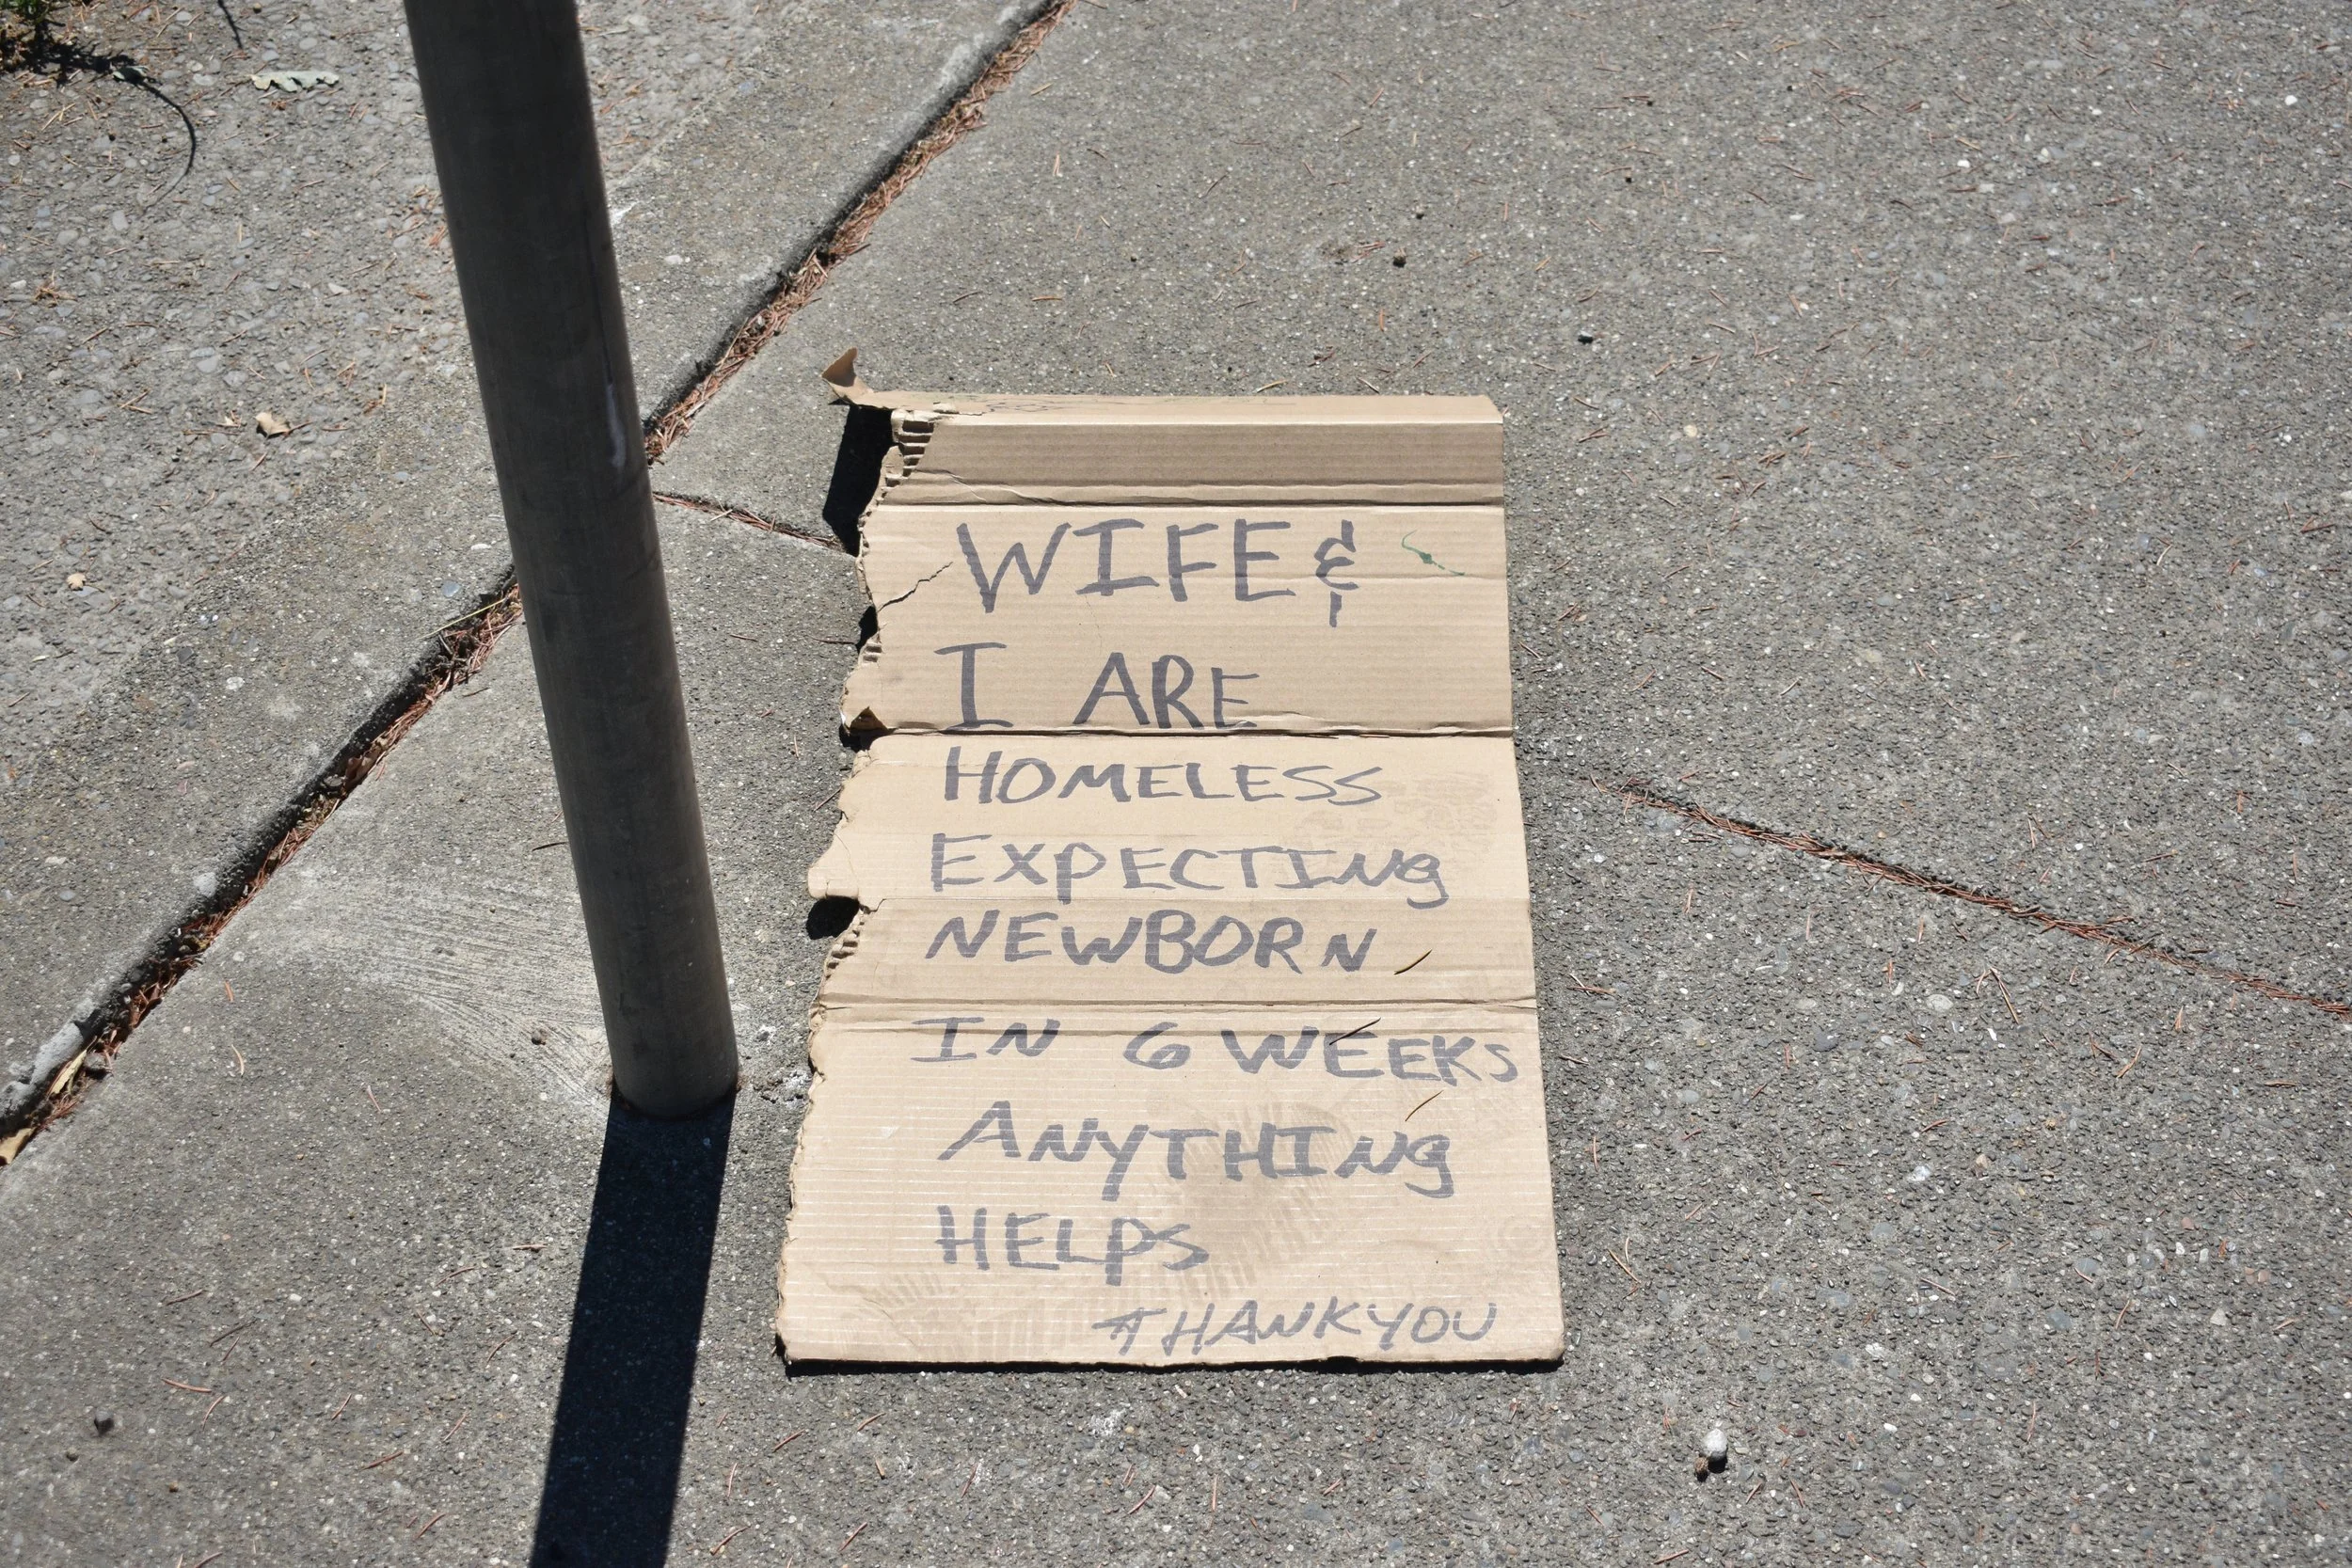 WIFE &
I ARE
HOMELESS
EXPECTING
NEWBORN
IN 6 WEEKS
ANYTHING
HELPS
THANKYOU